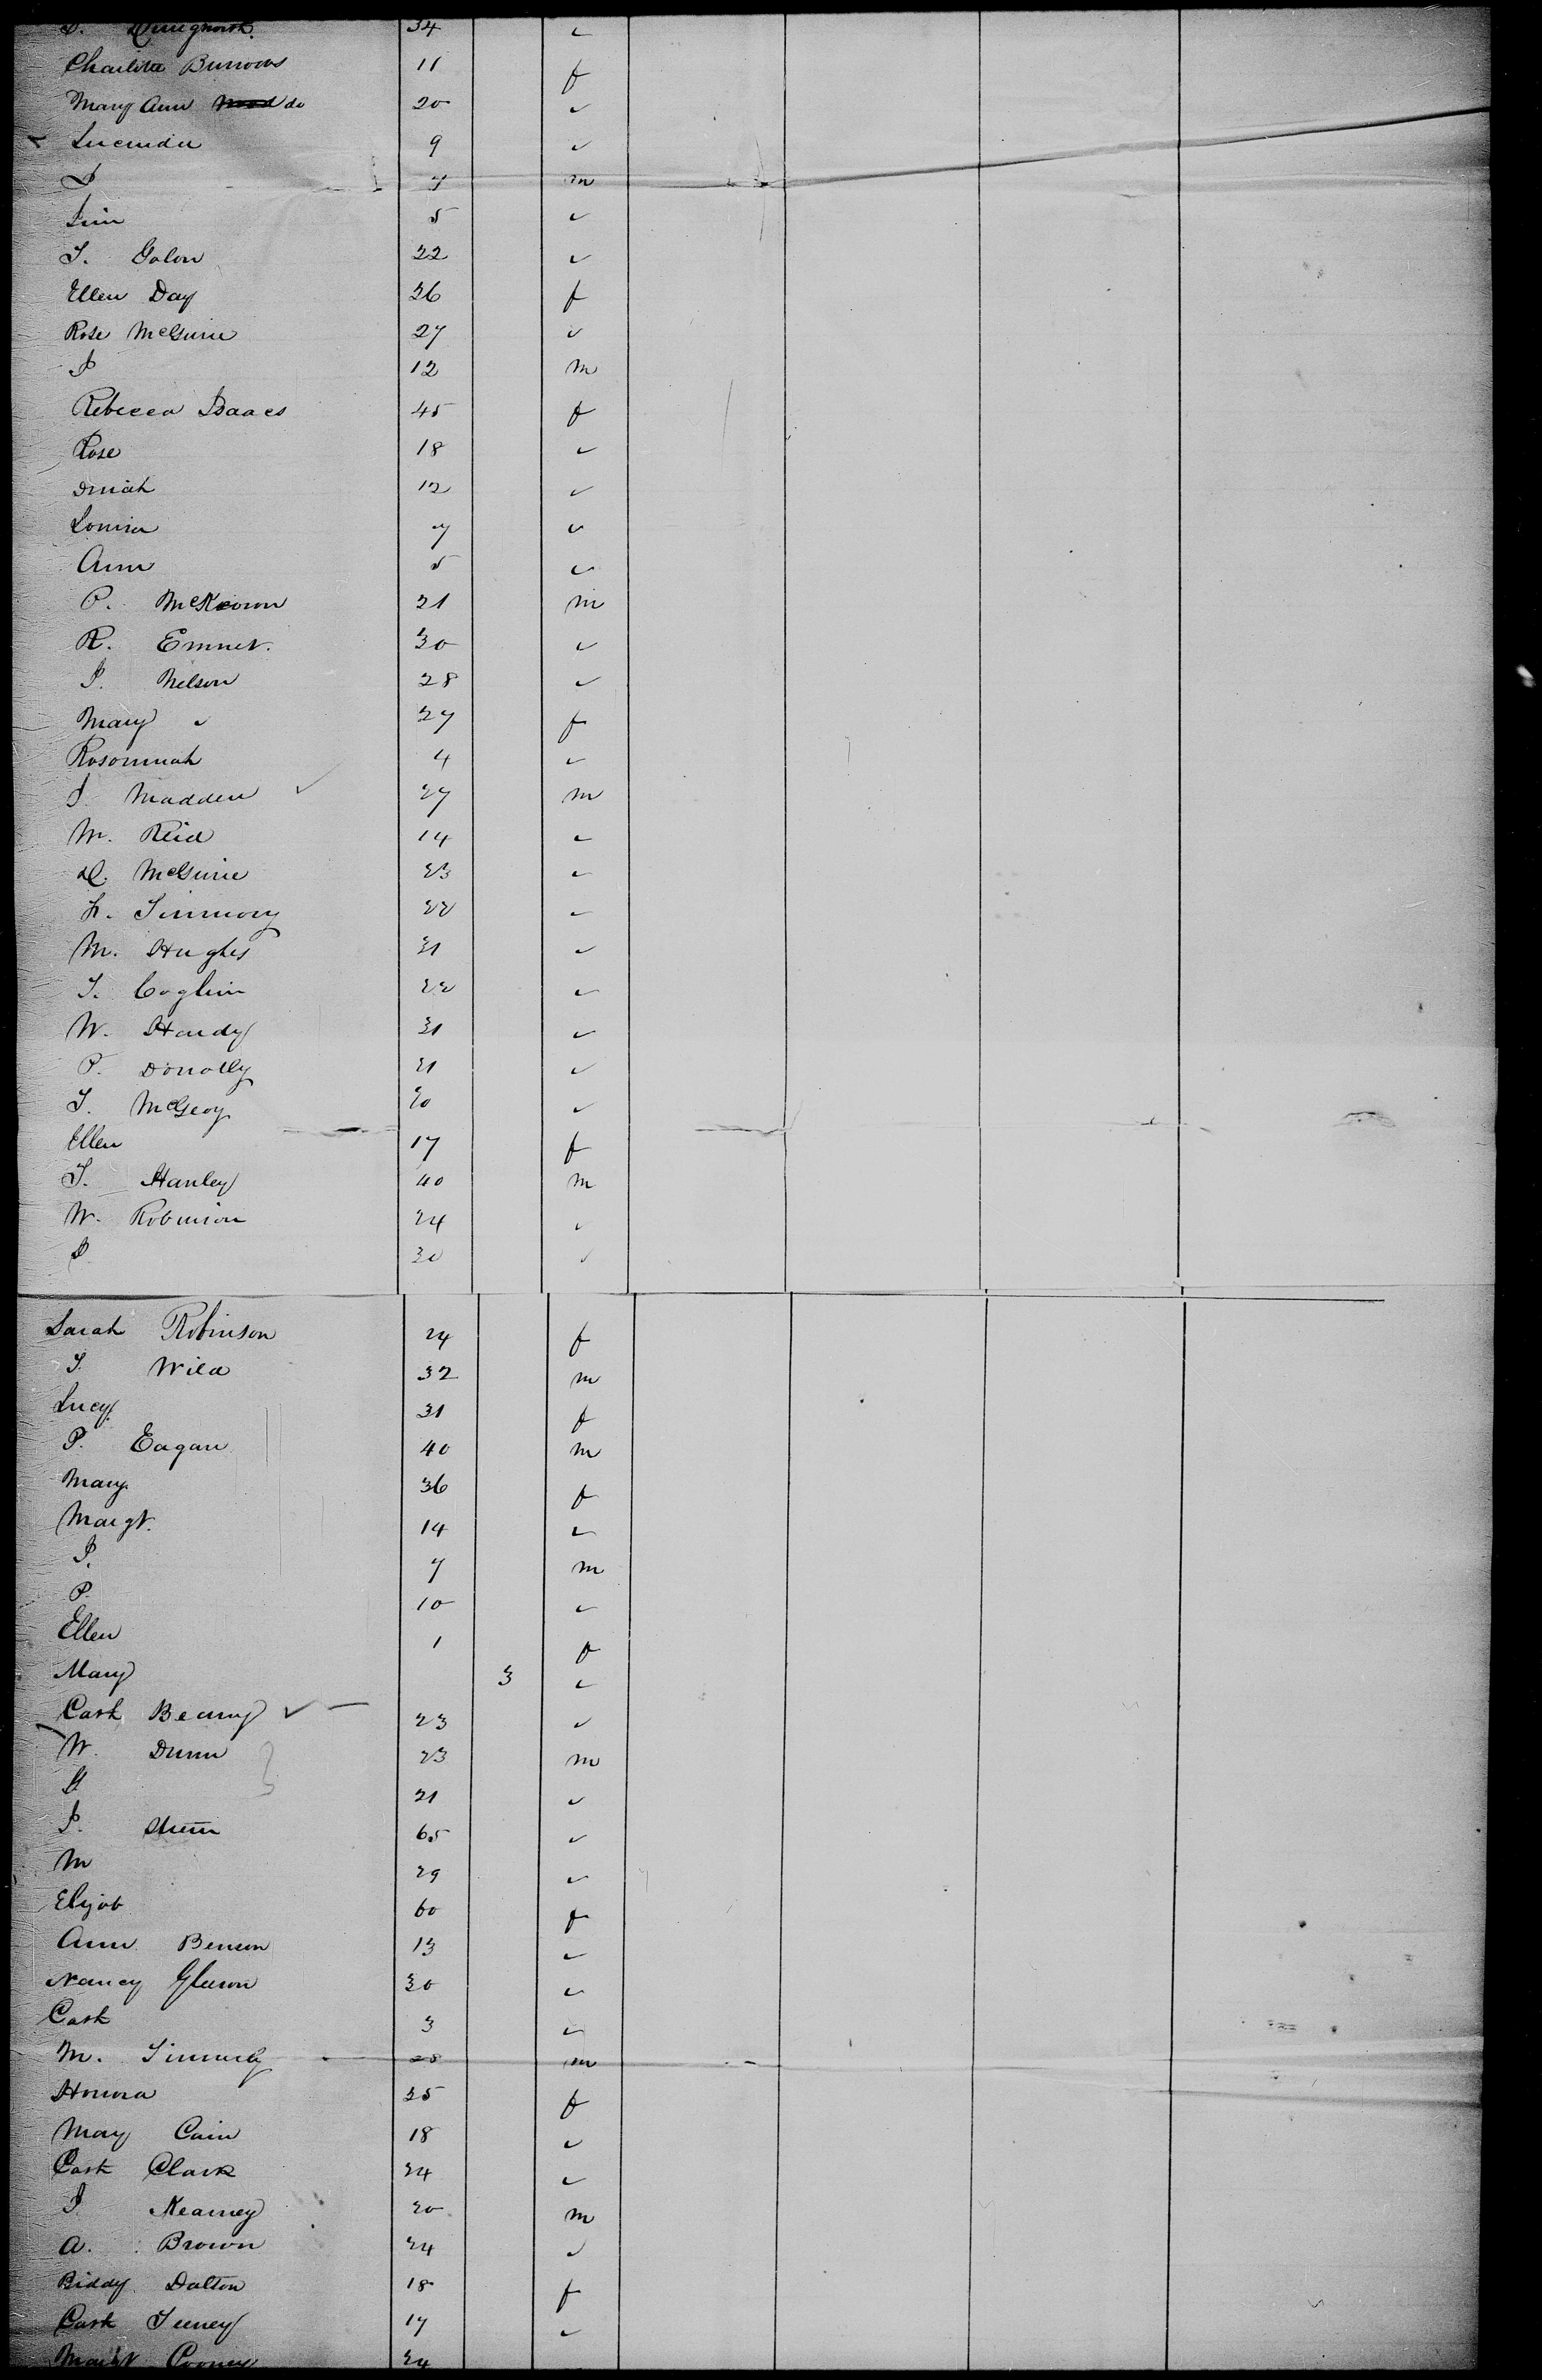 34 ✓
Charlotte Burrows 11 f
Mary Ann do 20 ✓
Lucinda 9 ✓
J 7 m
Jim 5 ✓
T. Golon 22 ✓
Ellen Day 26 f
Rose McGuire 27 ✓
J 12 m
Rebecca Isaacs 45 f
Rose 18 ✓
Dinah 12 ✓
Louisa 7 ✓
Ann 5 ✓
P. McKeown 21 m
R. Emmet. 30 ✓
J. Nelson 28 ✓
Mary ✓ 27 f
Rosannah 4 ✓
J Madden ✓ 27 m
M. Reid 14 ✓
McGuire 23 ✓
22 ✓
M. Hughes 31 ✓
T. Coglin 22 ✓
W. Hardy 31 ✓
P. Donolly 21 ✓
T. McGeoy 20 ✓
Ellen 17 f
T. Hanley 40 m
W. Robinson 24 ✓
J 30 ✓
Sarah Robinson 24 f
T. Wild 32 m
Lucy 31 f
P. Eagan 40 m
Mary 36 f
Margt. 14 ✓
J. 7 m
P. 10 ✓
Ellen 1 f
Mary 3 ✓
Cath ✓ 23 ✓
W. Dunn 23 m
21 ✓
J. 65 ✓
M 29 ✓
60 f
Ann Benson 13 ✓
Nancy Gleeson 30 ✓
Cath 3 ✓
M. 28 m
Honora 25 f
Mary Cain 18 ✓
Cath Clark 24 ✓
J Kearney 20 m
A. Brown 24 ✓
Biddy Dalton 18 f
Cath Feeney 17 ✓
Margt Cooney 24